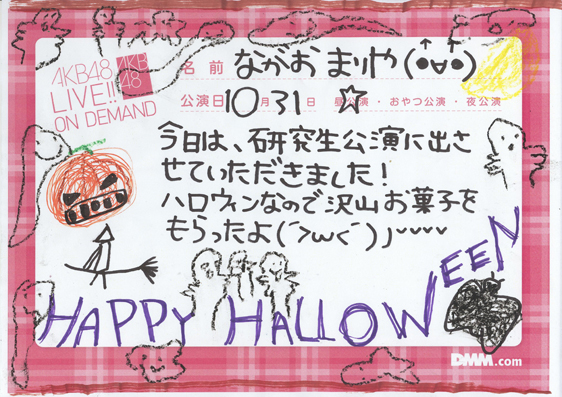 AKB48
LIVE!!
ON DEMAND
AKB
48
名前 ながお まりや(・v・)
公演日 10月31日 ☆ 昼公演・おやつ公演・夜公演
今日は、研究生公演に出さ
せていただきました!
ハロウィンなので沢山お菓子を
もらったよ(´>ω<`)ノ〰〰
HAPPY HALLOWEEN
DMM.com